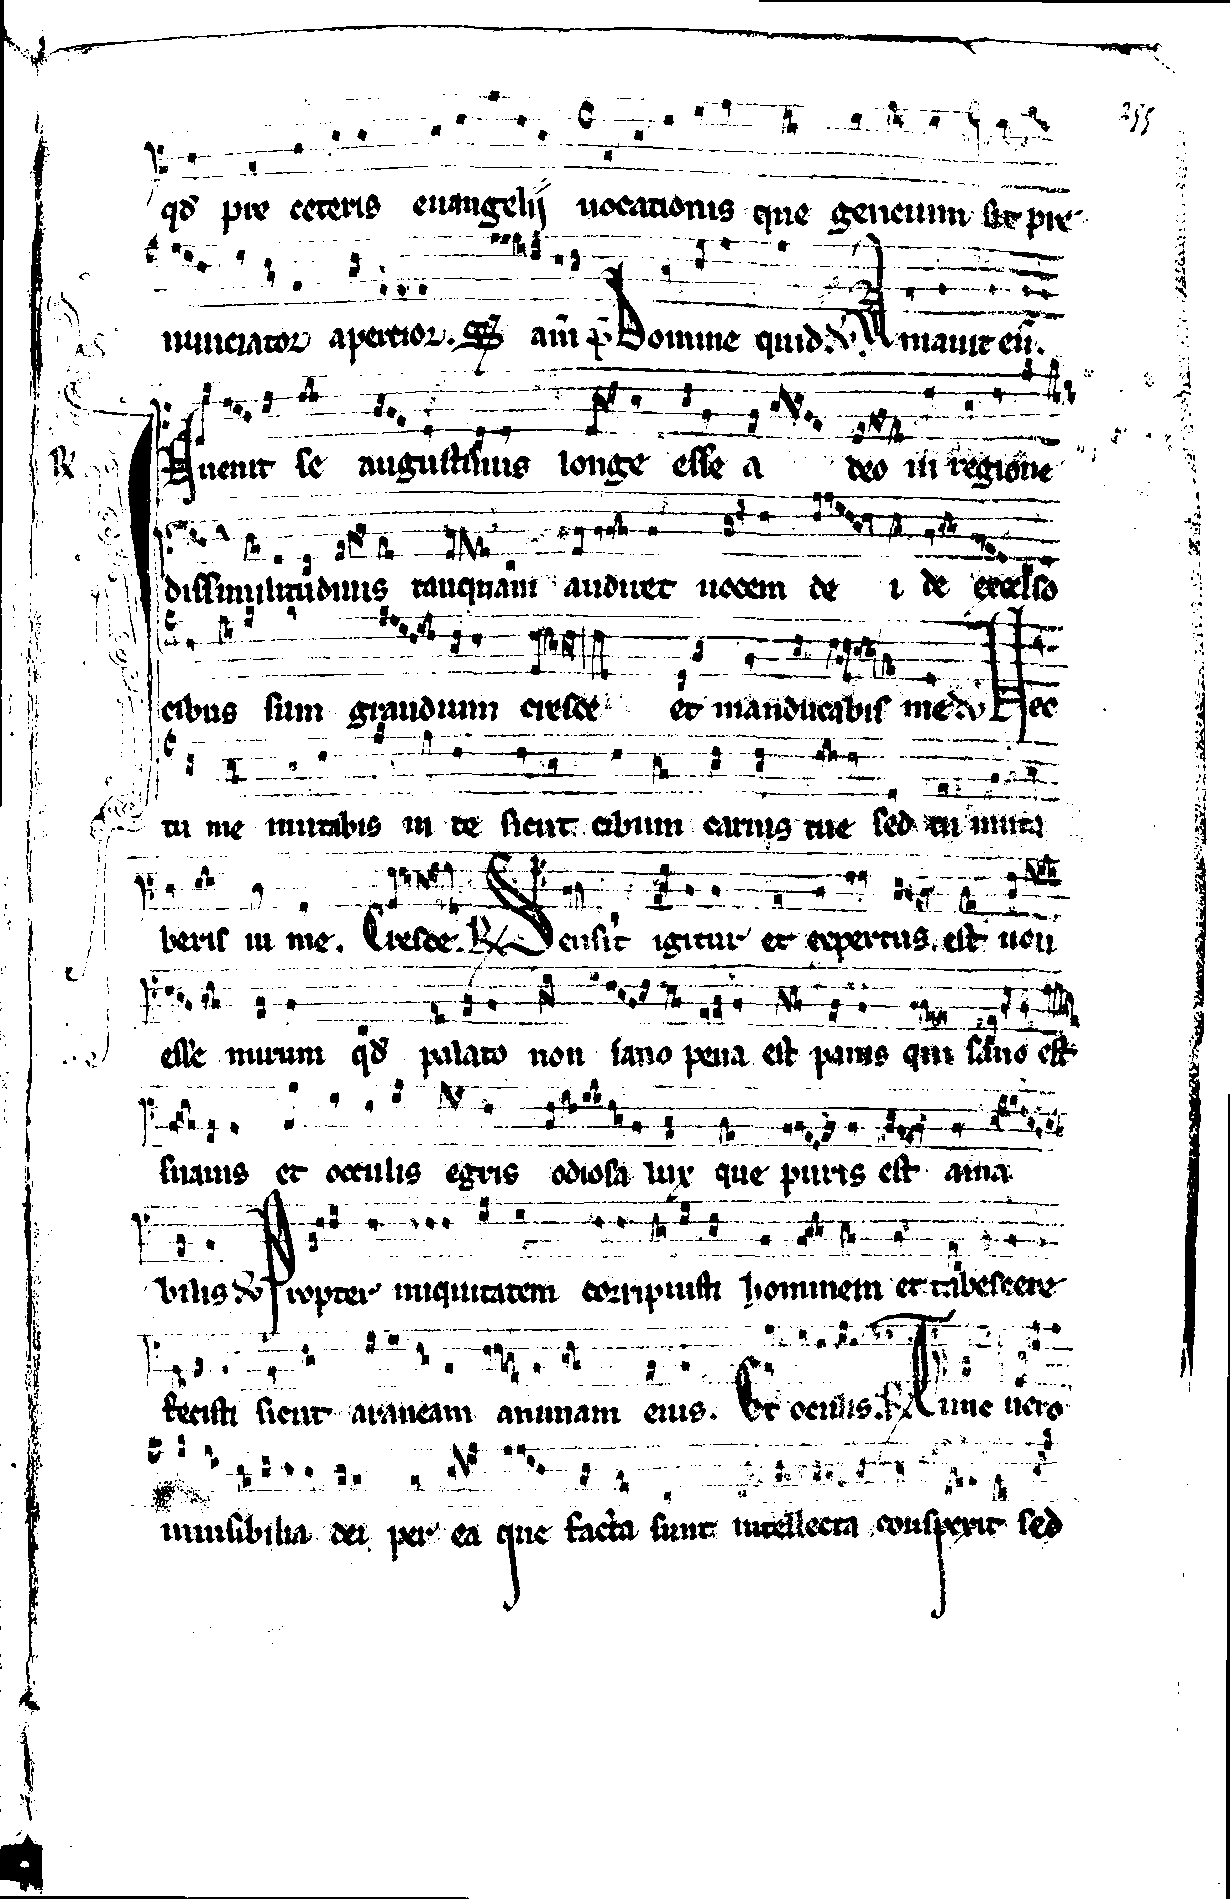 255
qd pre ceteris euangelij uocationis que gencium sit pre
nunciator apertior. Ps am p Domine quid. V Amauit eu.
R Inuenit se augustinus longe esse a deo in regione
dissimilitudinis tanquam audiret uocem de i de excelso
cibus sum grandium cresce et manducabis me V Nec
tu me mutabis in te sicut cibum carnis tue sed tu muta
beris in me. Cresce. R Sensit igitur et expertus est non
esse mirum qd palato non sano pena est panis qui sano est
suauis et occulis egris odiosa lux que puris est ama
bilis V Propter iniquitatem corripuisti hominem et tabescere
fecisti sicut araneam animam eius. Et oculis. R Tunc uero
inuisibilia dei per ea que facta sunt intellecta conspexit sed